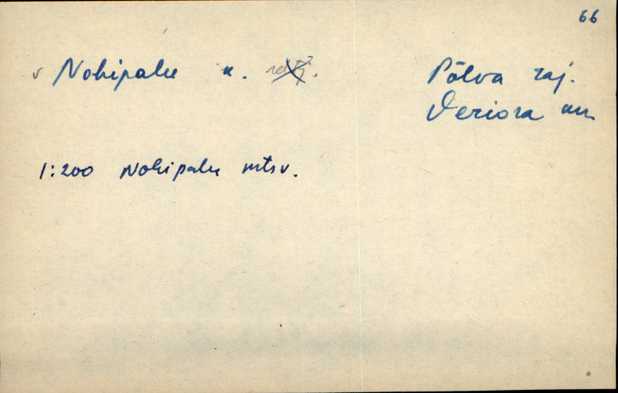 66
v Nohipalu k. Põlva raj.
Veriora
1:200 Nohipalu mtsv.